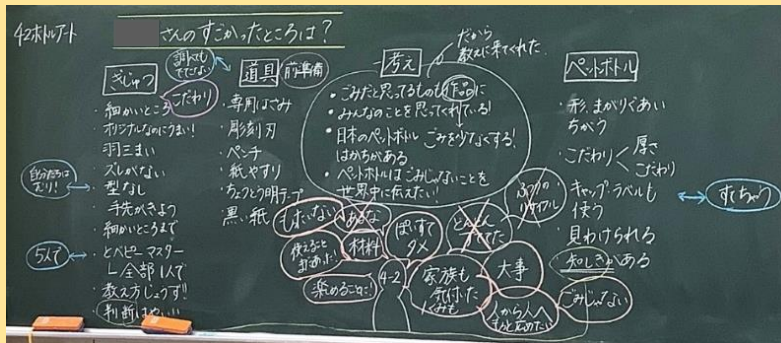 4-2ボトルアート
さんのすごかったところは?
調べても
でてこない
ぎじゅつ
こだわり
・細かいところ
・オリジナルなのにうまい!
羽三まい
・ズレがない
・型なし
・手先がきよう
・細かいところまで
・とべピーマスター
└全部1人で
・教え方じょうず!!
・判断はやい!!
自分たちは
むり!
5人で
道具
前準備
・専用はさみ
・彫刻刃
・ペンチ
・紙やすり
・ちょうとう明テープ
・黒い紙
考え
だから
教えに来てくれた
・ごみだと思ってるものも作品に
・みんなのことを思ってくれている!
・日本のペットボトルごみを少なくする!
はかちがある
・ペットボトルはごみじゃないことを
世界中に伝えたい!
もったいない
材料
ぽいすて
ダメ
リサイクル
使えること
楽めることに!
4-2
家族も
気付いた
大事
人から人へ
もっと広めたい
ごみじゃない
ペットボトル
・形、まがりぐあい
ちがう
・こだわり
厚さ
こだわり
・キャップ・ラベルも
使う
・見わけられる
・知しきがある
すてちゃう